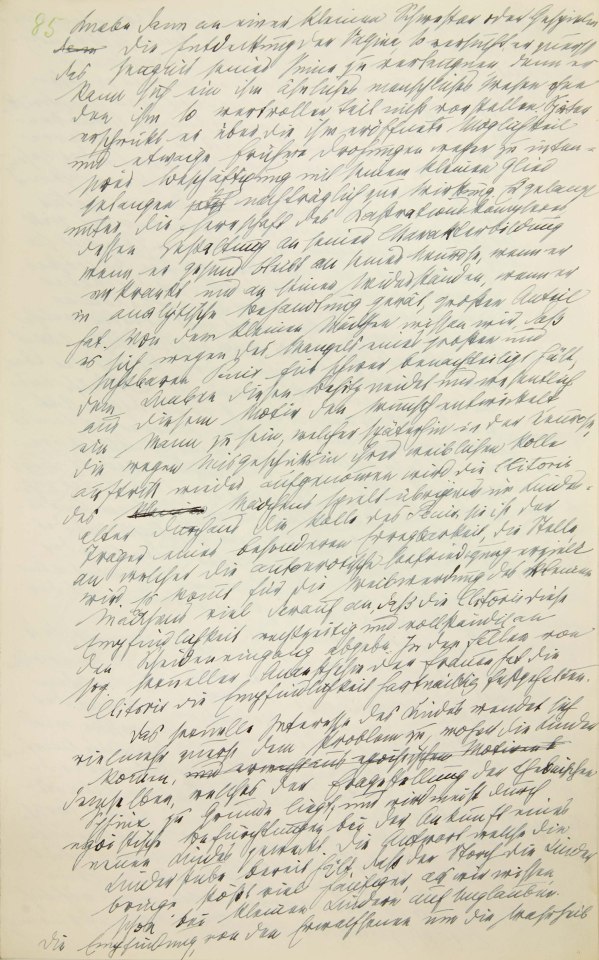 85
Knabe dann an einer kleinen Schwester oder Gespielin
die Entdeckung der Vagina, so versucht er zuerst
das Zeugnis seiner Sinne zu verleugnen, denn er
kann sich ein ihm ähnliches menschliches Wesen ohne
den ihm so wertvollen Teil nicht vorstellen. Später
erschrickt er über die ihm eröffnete Möglichkeit
und etwaige frühere Drohungen wegen zu inten-
siver Beschäftigung mit seinem kleinen Glied
gelangen nachträglich zur Wirkung. Er gelangt
unter die Herrschaft des Kastrationskomplexes
dessen Gestaltung an seiner Charakterbildung
wenn er gesund bleibt, an seiner Neurose, wenn er
erkrankt und an seinen Widerständen, wenn er
in analytische Behandlung gerät, großen Anteil
hat. Von dem kleinen Mädchen wissen wir, daß
es sich wegen des Mangels eines großen und
sichtbaren Penis für schwer benachteiligt hält,
dem Knaben diesen Besitz neidet und wesentlich
aus diesem Motiv den Wunsch entwickelt
ein Mann zu sein, welcher späterhin in der Neurose,
die wegen Mißgeschicks in ihrer weiblichen Rolle
auftritt wieder aufgenommen wird. Die Clitoris
des Mädchens spielt übrigens im Kindes-
alter durchaus die Rolle des Penis, sie ist der
Träger einer besonderen Erregbarkeit, die Stelle
an welcher die autoerotische Befriedigung erzielt
wird. Es kommt für die Weibwerdung des kleinen
Mädchens viel darauf an, daß die Clitoris diese
Empfindlichkeit rechtzeitig und vollständig an
den Scheideneingang abgebe. In den Fällen von
sog. sexueller Anästhesie der Frauen hat die
Clitoris die Empfindlichkeit hartnäckig festgehalten.
Das sexuelle Interesse des Kindes wendet sich
vielmehr zuerst dem Problem zu, woher die Kinder
kommen,
demselben, welches der Fragestellung der thebaischen
Sphinx zu Grunde liegt, und wird meist durch
egoistische Befürchtungen bei der Ankunft eines
neuen Kindes geweckt. Die Antwort welche die
Kinderstube bereit hält, daß der Storch die Kinder
bringe, stößt viel häufiger, als wir wissen
schon bei kleinen Kindern auf Unglauben.
Die Empfindung, von den Erwachsenen um die Wahrheit